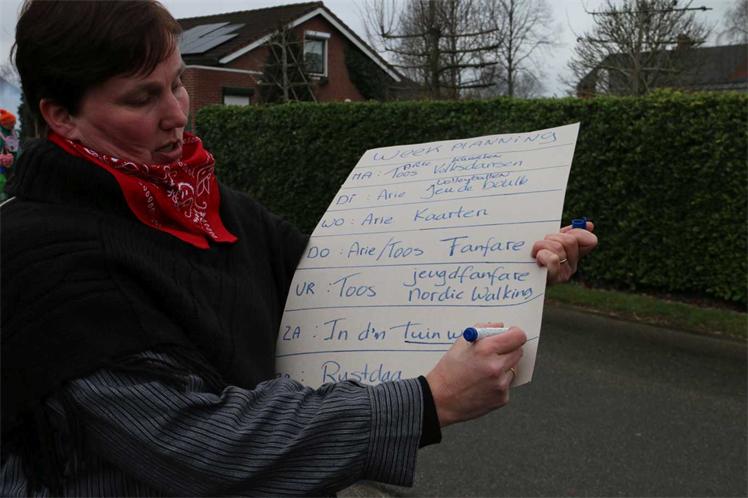 WEEK PLANNING
Arie kaarten
MA : Toos Volksdansen
volleyballen
DI : Arie Jeu de boulle
WO : Arie Kaarten
DO : Arie/Toos Fanfare
jeugdfanfare
VR : Toos nordic Walking
ZA : In d'n Tuin
Rustdag